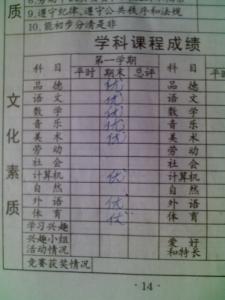 质
8.劳动中不怕苦和累
9.遵守纪律,遵守公共秩序和法规
10.能初步分清是非
学科课程成绩
文化素质
科目 第一学期 科目
平时 期末 总评
品德 优 品德
语文 优 语文
数学 优 数学
音乐 优 音乐
美术 优 美术
劳动 劳动
社会 社会
计算机 优 计算机
自然 自然
外语 优 外语
体育 优 体育
学习兴趣
兴趣小组活动情况 爱好和特长
竞赛获奖情况
· 14 ·